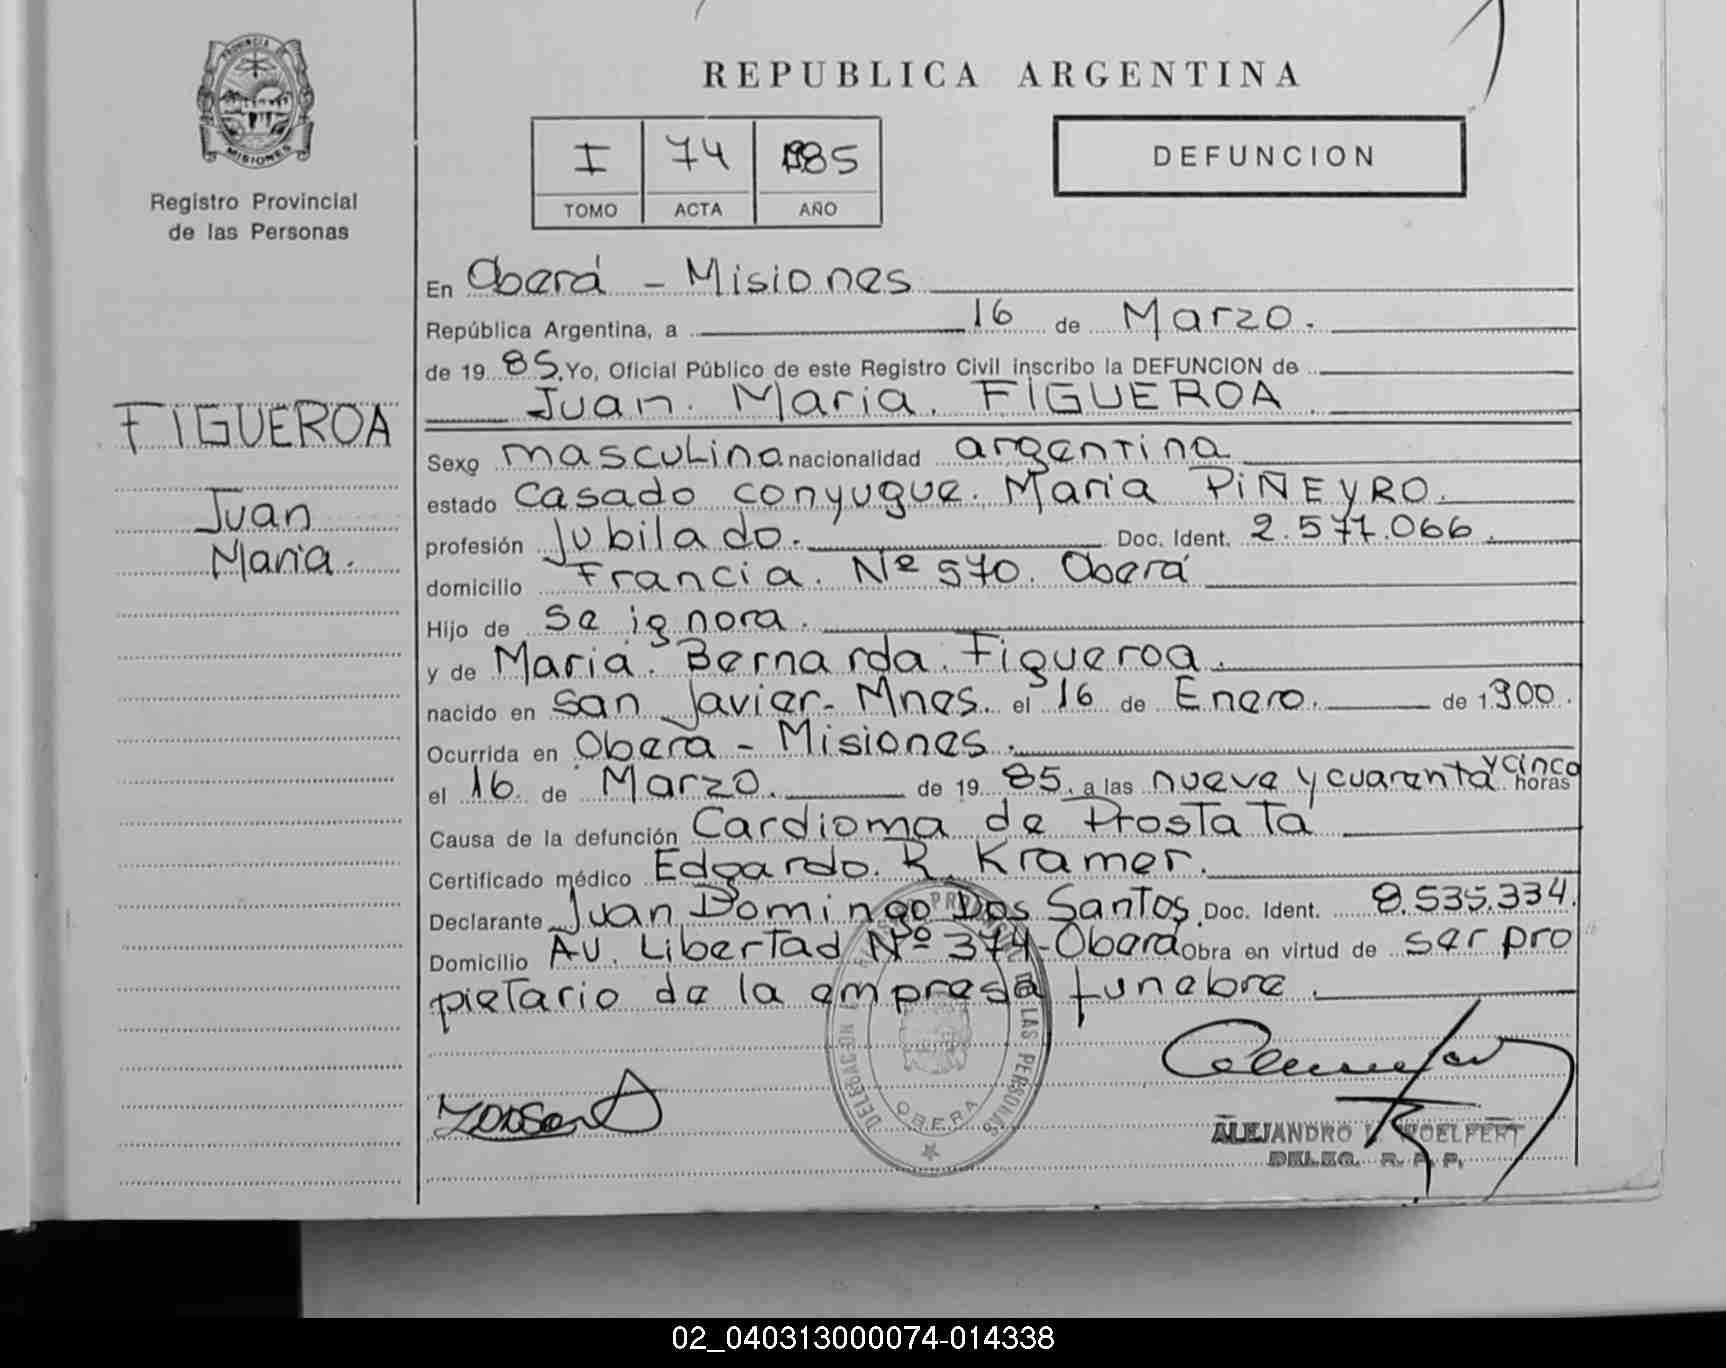 PROVINCIA DE
MISIONES
Registro Provincial
de las Personas
FIGUEROA
Juan
Maria.
REPUBLICA ARGENTINA
I 74 1985
TOMO ACTA AÑO
DEFUNCION
En Oberá - Misiones
República Argentina, a 16 de Marzo.
de 19 85. Yo, Oficial Público de este Registro Civil inscribo la DEFUNCION de
Juan. Maria. FIGUEROA
Sexo masculino nacionalidad argentina
estado casado conyugue. Maria PIÑEYRO.
profesión Jubilado. Doc. Ident. 2.577.066.
domicilio Francia. Nº 570. Oberá
Hijo de se ignora.
y de Maria. Bernarda. Figueroa.
nacido en San Javier- Mnes. el 16 de Enero. de 1900.
Ocurrida en Oberá - Misiones.
el 16. de Marzo. de 19 85. a las nueve y cuarenta y cinco horas
Causa de la defunción Cardioma de Prostata
Certificado médico Edgardo. R. Kramer.
Declarante Juan Domingo Dos Santos. Doc. Ident. 8.535.334.
Domicilio Av. Libertad Nº 374-Oberá Obra en virtud de ser pro
pietario de la empresa funebre.
DELEGACION REGISTRO PROVINCIAL DE LAS PERSONAS
OBERA
ALEJANDRO WOELFERT
DELEG. R. P. P.
02_040313000074-014338